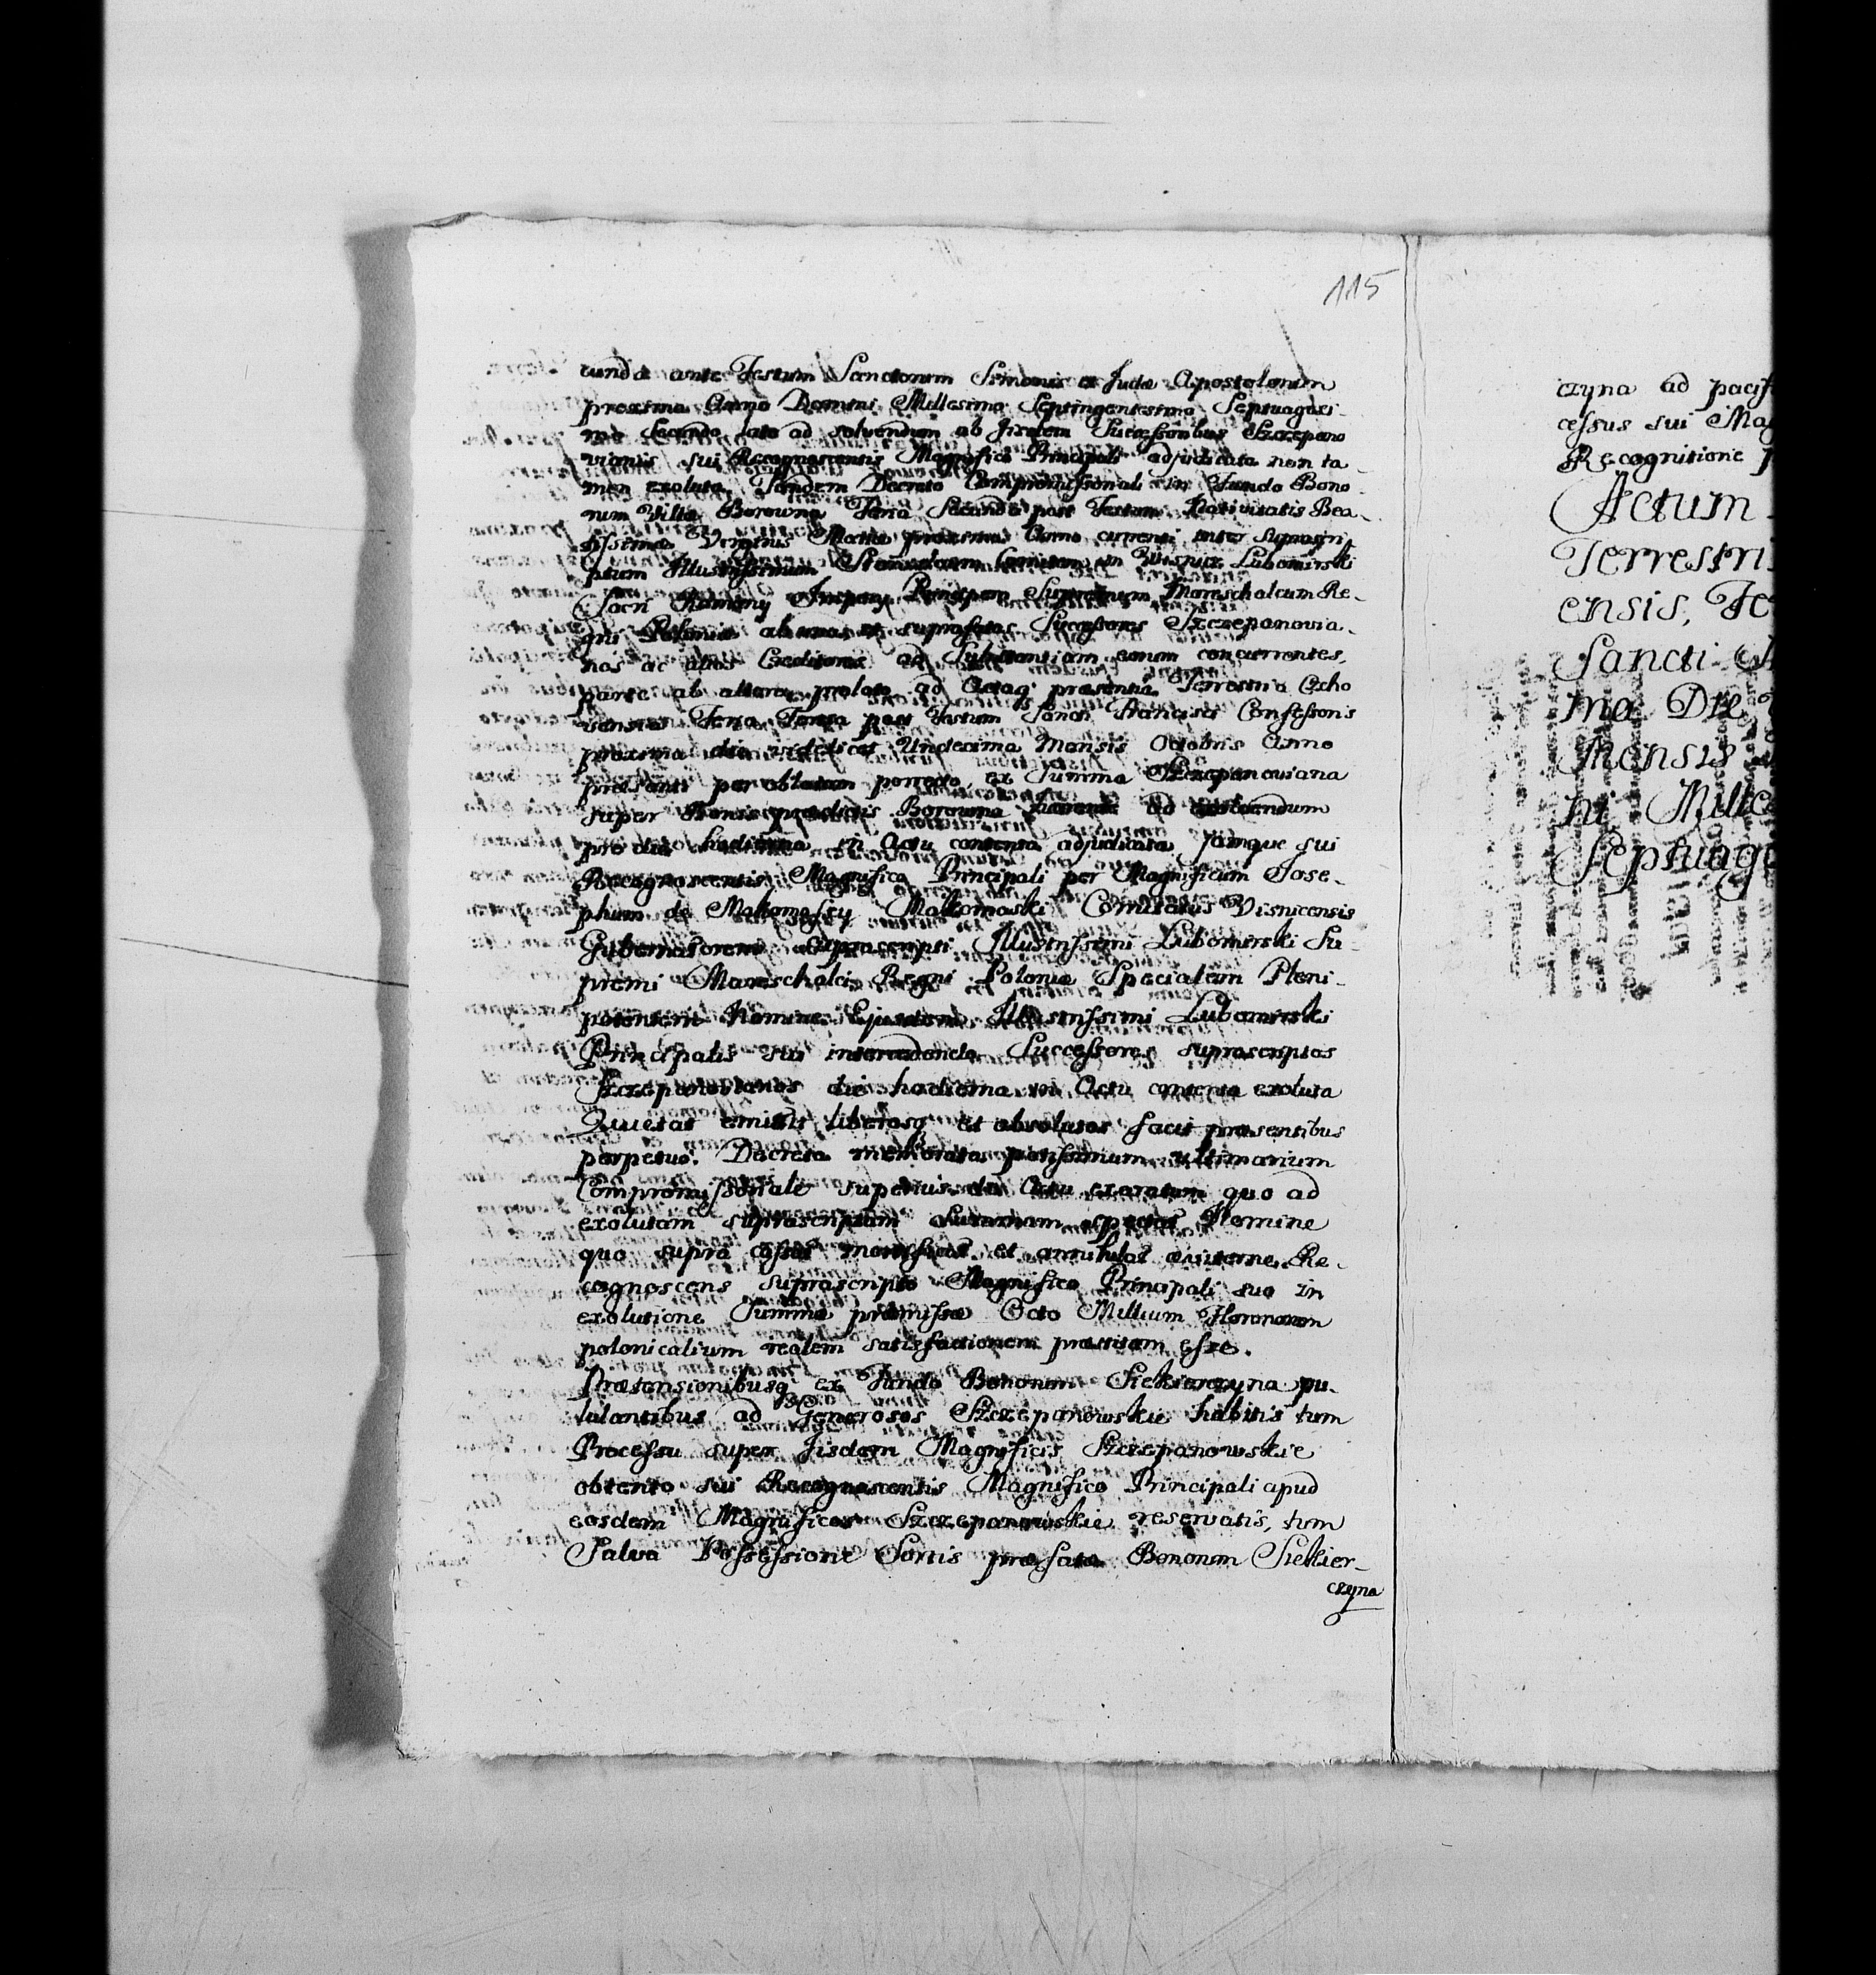 115
cunda ante Festum Sanctorum Simonis et Juda Apostolorum
proxima Anno Domini Millesimo Septingentesimo Septuagesi-
mo Secundo lato ad solvendum ab Iisdem Successoribus Szczepano
vianis sui Recognoscentis Magnifico Principali adjudicata non ta-
men exoluta, Tandem Decreto Compromissionali in Fundo Bono-
rum Villa Borowna Feria Secunda post Festum Nativitatis Bea-
tissima Virginis Maria proxima Anno currenti inter Suprascri-
ptum Illustrissimum Stanislaum Comitem in Wisnicz Lubomirski
Sacri Romani Imperii Principem Supremum Mareschalcum Re-
gni Polonia ab una et suprafatos Successores Szczepanovia-
nos ac alios Creditores ad Substantiam eorum concurrentes,
parte ab altera prolato ad Actaq: præsentia Terrestria Czcho
viensia Feria Tertia post Festum Sancti Francisci Confessoris
proxima die videlicet Undecima Mensis Octobris Anno
præsenti per oblatam porrecto, ex Summa Szczepanoviana
super Bonis prædictis Borowna ad
pro die hodierna in Actu contenta adjudicata, jamque sui
Recognoscentis Magnifico Principali per Magnificum Jose-
phum de Makomasky Makomaski Comitatus Visnicensis
Gubernatorem ac suprascripti Illustrissimi Lubomirski Su-
premi Mareschalci Regni Polonia Specialem Pleni-
potentem Nomine Ejusdem Illustrissimi Lubomirski
Principalis sui intercedendo Successores suprascriptos
Szczepanovianos die hodierna in Actu contenta exoluta
Quietat emittit liberosq et absolutos facit præsentibus
perpetuo. Decreta memorata ultimarium
Compromissionale superius de Actu exaratum quo ad
exolutam suprascriptam Summam Nomine
quo supra cassat mortificat et annihilat æviterne. Re-
cognoscens suprascripto Magnifico Principali suo in
exolutione Summa præmissa Octo Millium Florenorum
polonicalium realem satisfactionem præstitam esse.
Prætensionibusq ex Fundo Bonorum Siekierczyna pu-
lulantibus ad Generosos Szczepanowskie habitis tum
Processu super Iisdem Magnificis Szczepanowskie
obtento sui Recognoscentis Magnifico Principali apud
eosdem Magnificos Szczepanowskie reservatis, tum
Salva Possessione Sortis præfata Bonorum Siekier-
czyna
czyna ad pacif
cessus sui Mag
Recognitione p
Actum
Terrestri
ensis, Fe
Sancti
ma Die
Mensis
ni Mille
Septuage